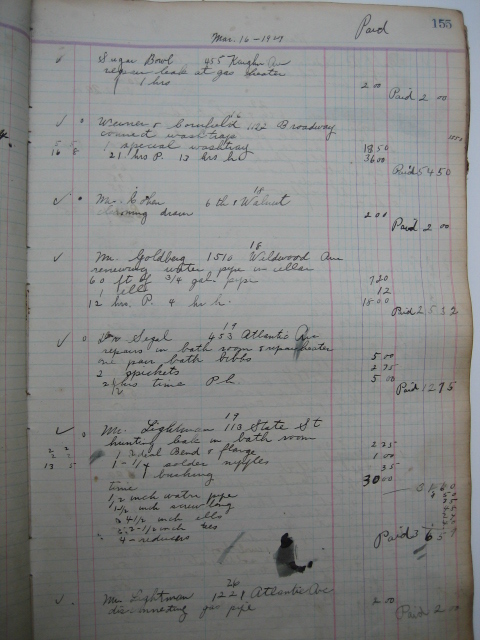 Paid 155
Mar. 16 - 1927
Sugar Bowl 455 Kaighn Av
repair leak at gas heater
1 hrs 2 00
Paid 2 00
Weiner & Cornfield 1122 Broadway
connect washtrays
1 special washtray 18 50
21 hrs P. 13 hrs h. 36 00
Paid 54 50
18
Mr. Cohen 6th & Walnut
cleaning drain 2 00
Paid 2 00
18
Mr. Goldberg 1510 Wildwood Ave
renewing water pipe in cellar
60 ft of 3/4 gal pipe 7 20
1 ells 12
12 hrs. P. 4 hr h. 18 00
Paid 25 32
19
Dr Segel 453 Atlantic Av
repairs in bath room &
one pair bath bibbs 5 00
2 spickets 2 75
2 1/2 hrs time P h. 5 00
Paid 12 75
19
Mr. Lightman 113 State St
hunting leak in bath room
1 Bend & flange 2 25
1 - 1 1/4 solder nipples 1 00
1 bushing 35
time 30 00
1 1/2 inch water pipe
1 1/2 inch screw long
3 4 1/2 inch ells
2 1/2 inch tees
4 - reducers
Paid
24
Mr Lightman 1221 Atlantic Ave
disconnecting gas pipe 2 00
Paid 2 00